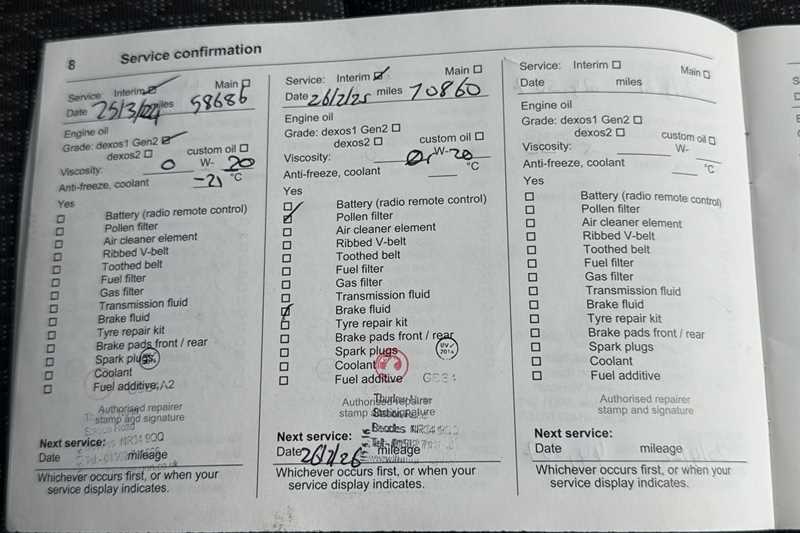 8 Service confirmation
Service: Interim Main
Date 25/3/24 miles 58686
Engine oil
Grade: dexos1 Gen2
dexos2 custom oil
Viscosity: 0 W- 20
Anti-freeze, coolant -21 °C
Yes
Battery (radio remote control)
Pollen filter
Air cleaner element
Ribbed V-belt
Toothed belt
Fuel filter
Gas filter
Transmission fluid
Brake fluid
Tyre repair kit
Brake pads front / rear
Spark plugs
Coolant
Fuel additive
Authorised repairer
stamp and signature
NR34 9QQ
Next service:
Date mileage
Whichever occurs first, or when your
service display indicates.
Service: Interim Main
Date 26/2/25 miles 70860
Engine oil
Grade: dexos1 Gen2
dexos2 custom oil
Viscosity: W- 20
Anti-freeze, coolant °C
Yes
Battery (radio remote control)
Pollen filter
Air cleaner element
Ribbed V-belt
Toothed belt
Fuel filter
Gas filter
Transmission fluid
Brake fluid
Tyre repair kit
Brake pads front / rear
Spark plugs
Coolant
Fuel additive
Authorised repairer
stamp and signature
Station
Beccles NR34 9QQ
Next service:
Date 26/2/26 mileage
Whichever occurs first, or when your
service display indicates.
Service: Interim Main
Date miles
Engine oil
Grade: dexos1 Gen2
dexos2 custom oil
Viscosity: W-
Anti-freeze, coolant °C
Yes
Battery (radio remote control)
Pollen filter
Air cleaner element
Ribbed V-belt
Toothed belt
Fuel filter
Gas filter
Transmission fluid
Brake fluid
Tyre repair kit
Brake pads front / rear
Spark plugs
Coolant
Fuel additive
Authorised repairer
stamp and signature
Next service:
Date mileage
Whichever occurs first, or when your
service display indicates.